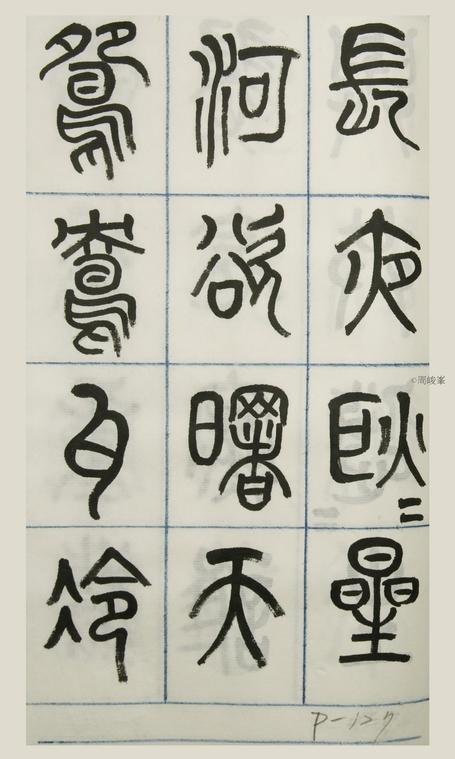 長夜耿〻星
河欲曙天
鴛鴦瓦冷
P-127
©周峻峯